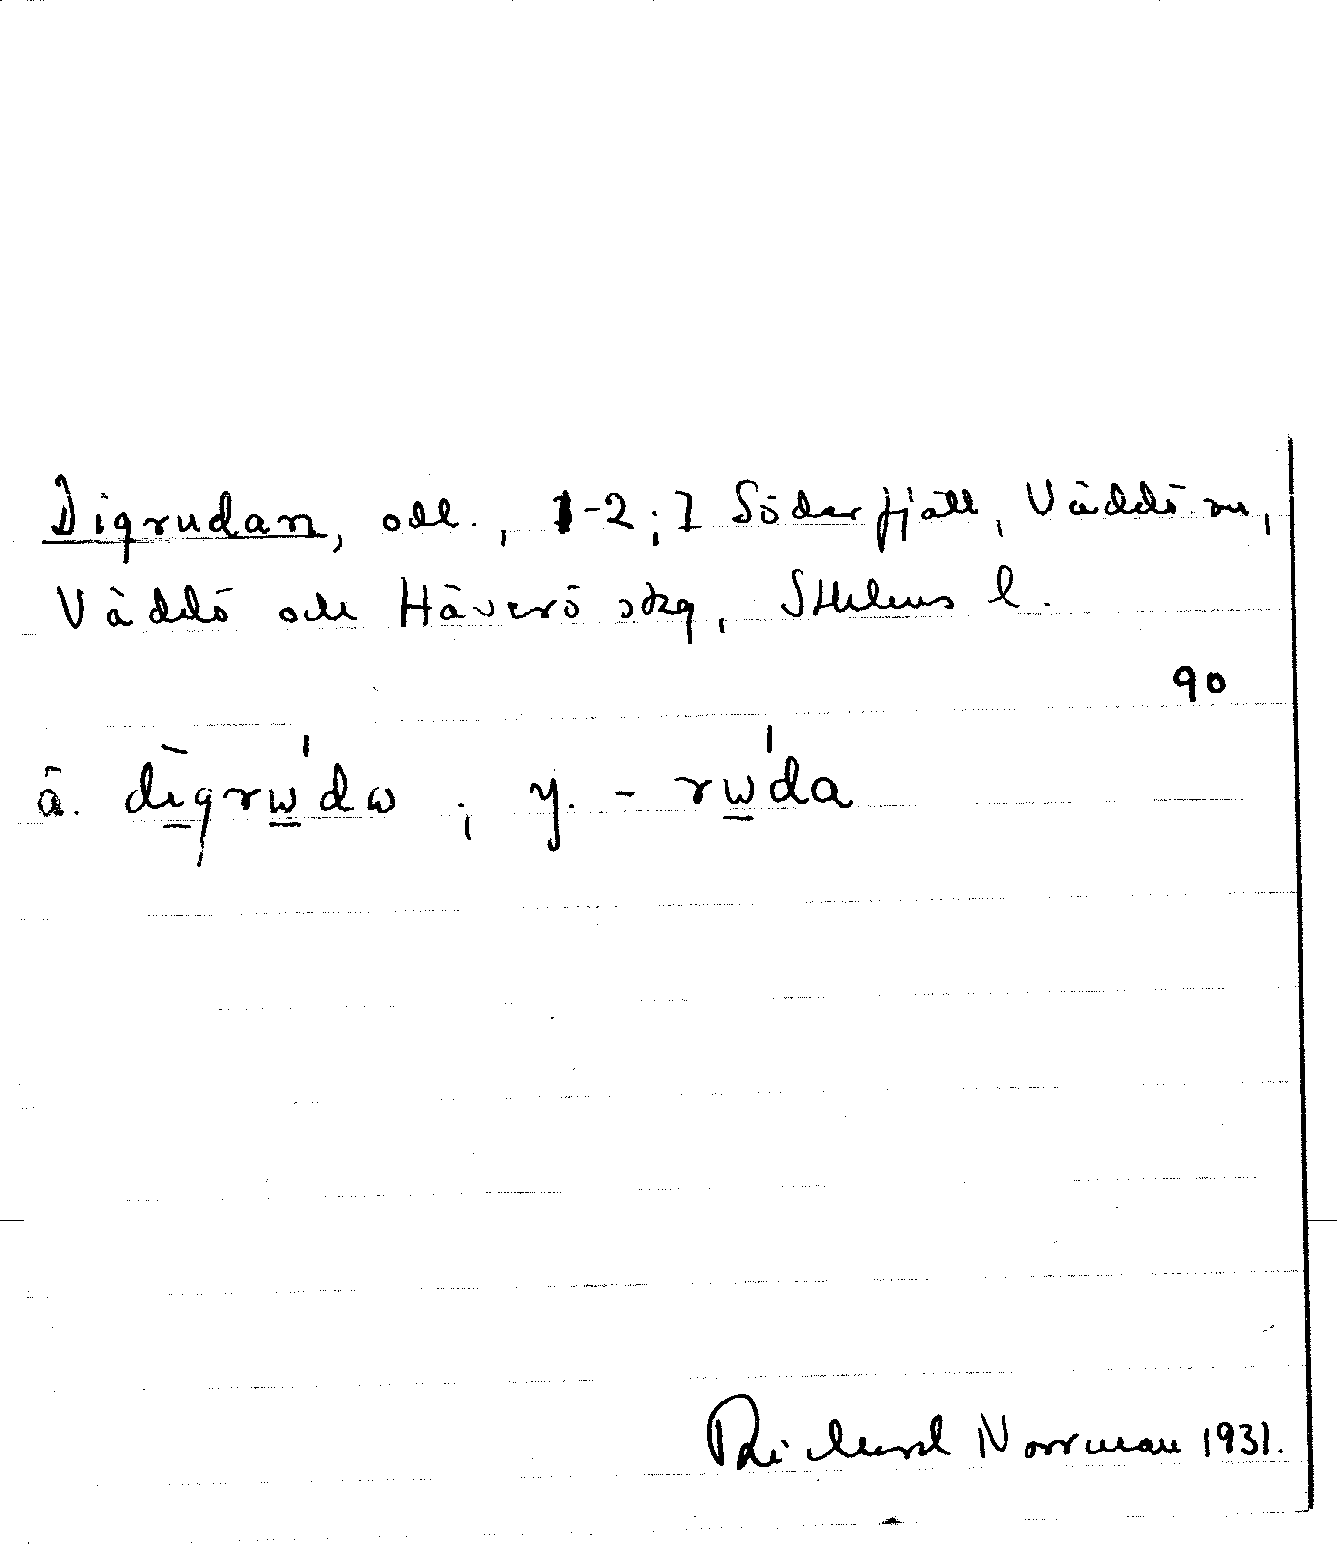 Digrudan, odl., 1-2; 7 Söderfjäll, Väddö sn,
Väddö och Häverö skg, Sthlms l.
90
ä. dìgrω'dω; y. - rω'da
Richard Norrman 1931.